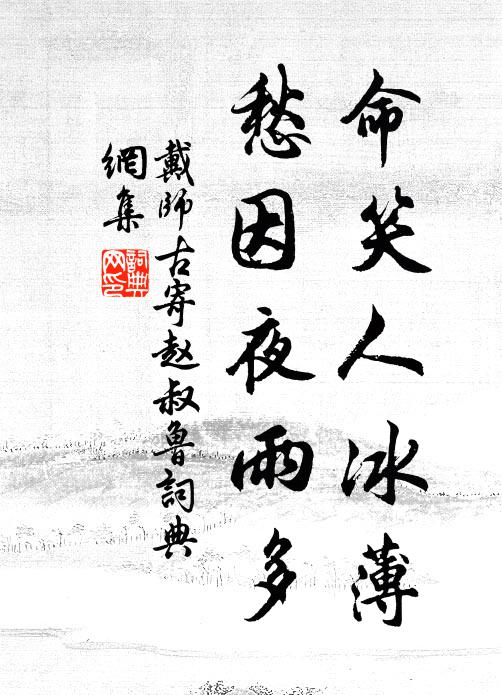 命笑人冰薄
愁因夜雨多
戴师古寄赵叔鲁詞典
網集
詞典
网印